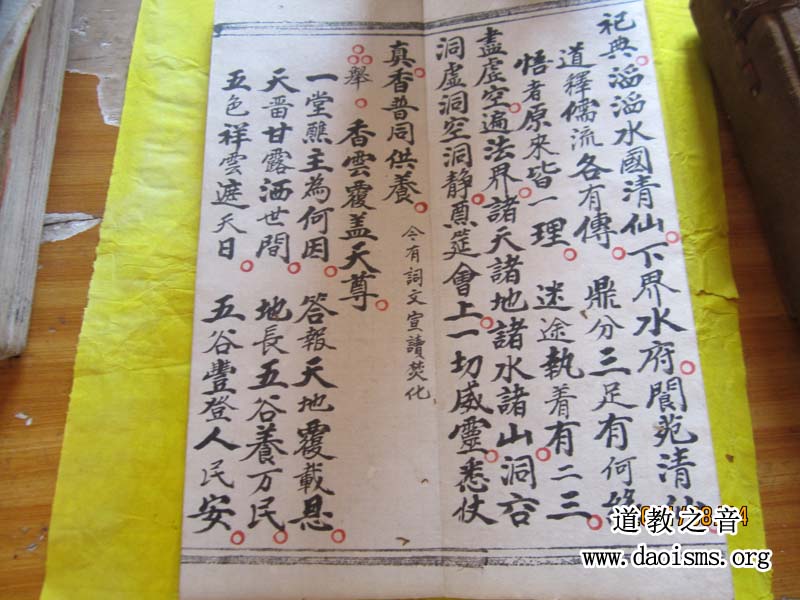 祀典滔滔水國清仙下界水府閬苑清
道釋儒流各有傳 鼎分三足有何
悟者原來皆一理 迷途執着有二三
盡虛空遍法界諸天諸地諸水諸山洞
洞虛洞空洞靜筵會上一切威靈悉仗
真香普同供養
今有詞文宣讀焚化
舉 香雲覆盖天尊
一堂醮主為何因 答報天地覆載恩
天畨甘露洒世間 地長五谷養万民
五色祥雲遮天日 五谷豐登人民安
道教之音
www.daoisms.org